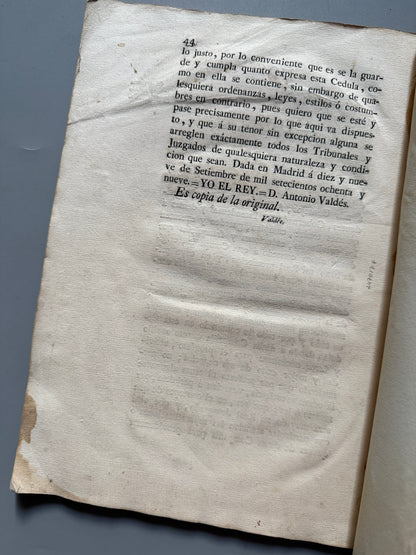 44
lo justo, por lo conveniente que es se la guar-
de y cumpla quanto expresa esta Cedula, co-
mo en ella se contiene, sin embargo de qua-
lesquiera ordenanzas, leyes, estilos ó costum-
bres en contrario, pues quiero que se esté y
pase precisamente por lo que aqui va dispues-
to, y que á su tenor sin excepcion alguna se
arreglen exáctamente todos los Tribunales y
Juzgados de qualesquiera naturaleza y condi-
cion que sean. Dada en Madrid á diez y nue-
ve de Setiembre de mil setecientos ochenta y
nueve.=YO EL REY.=D. Antonio Valdés.
Es copia de la original.
Valdés.